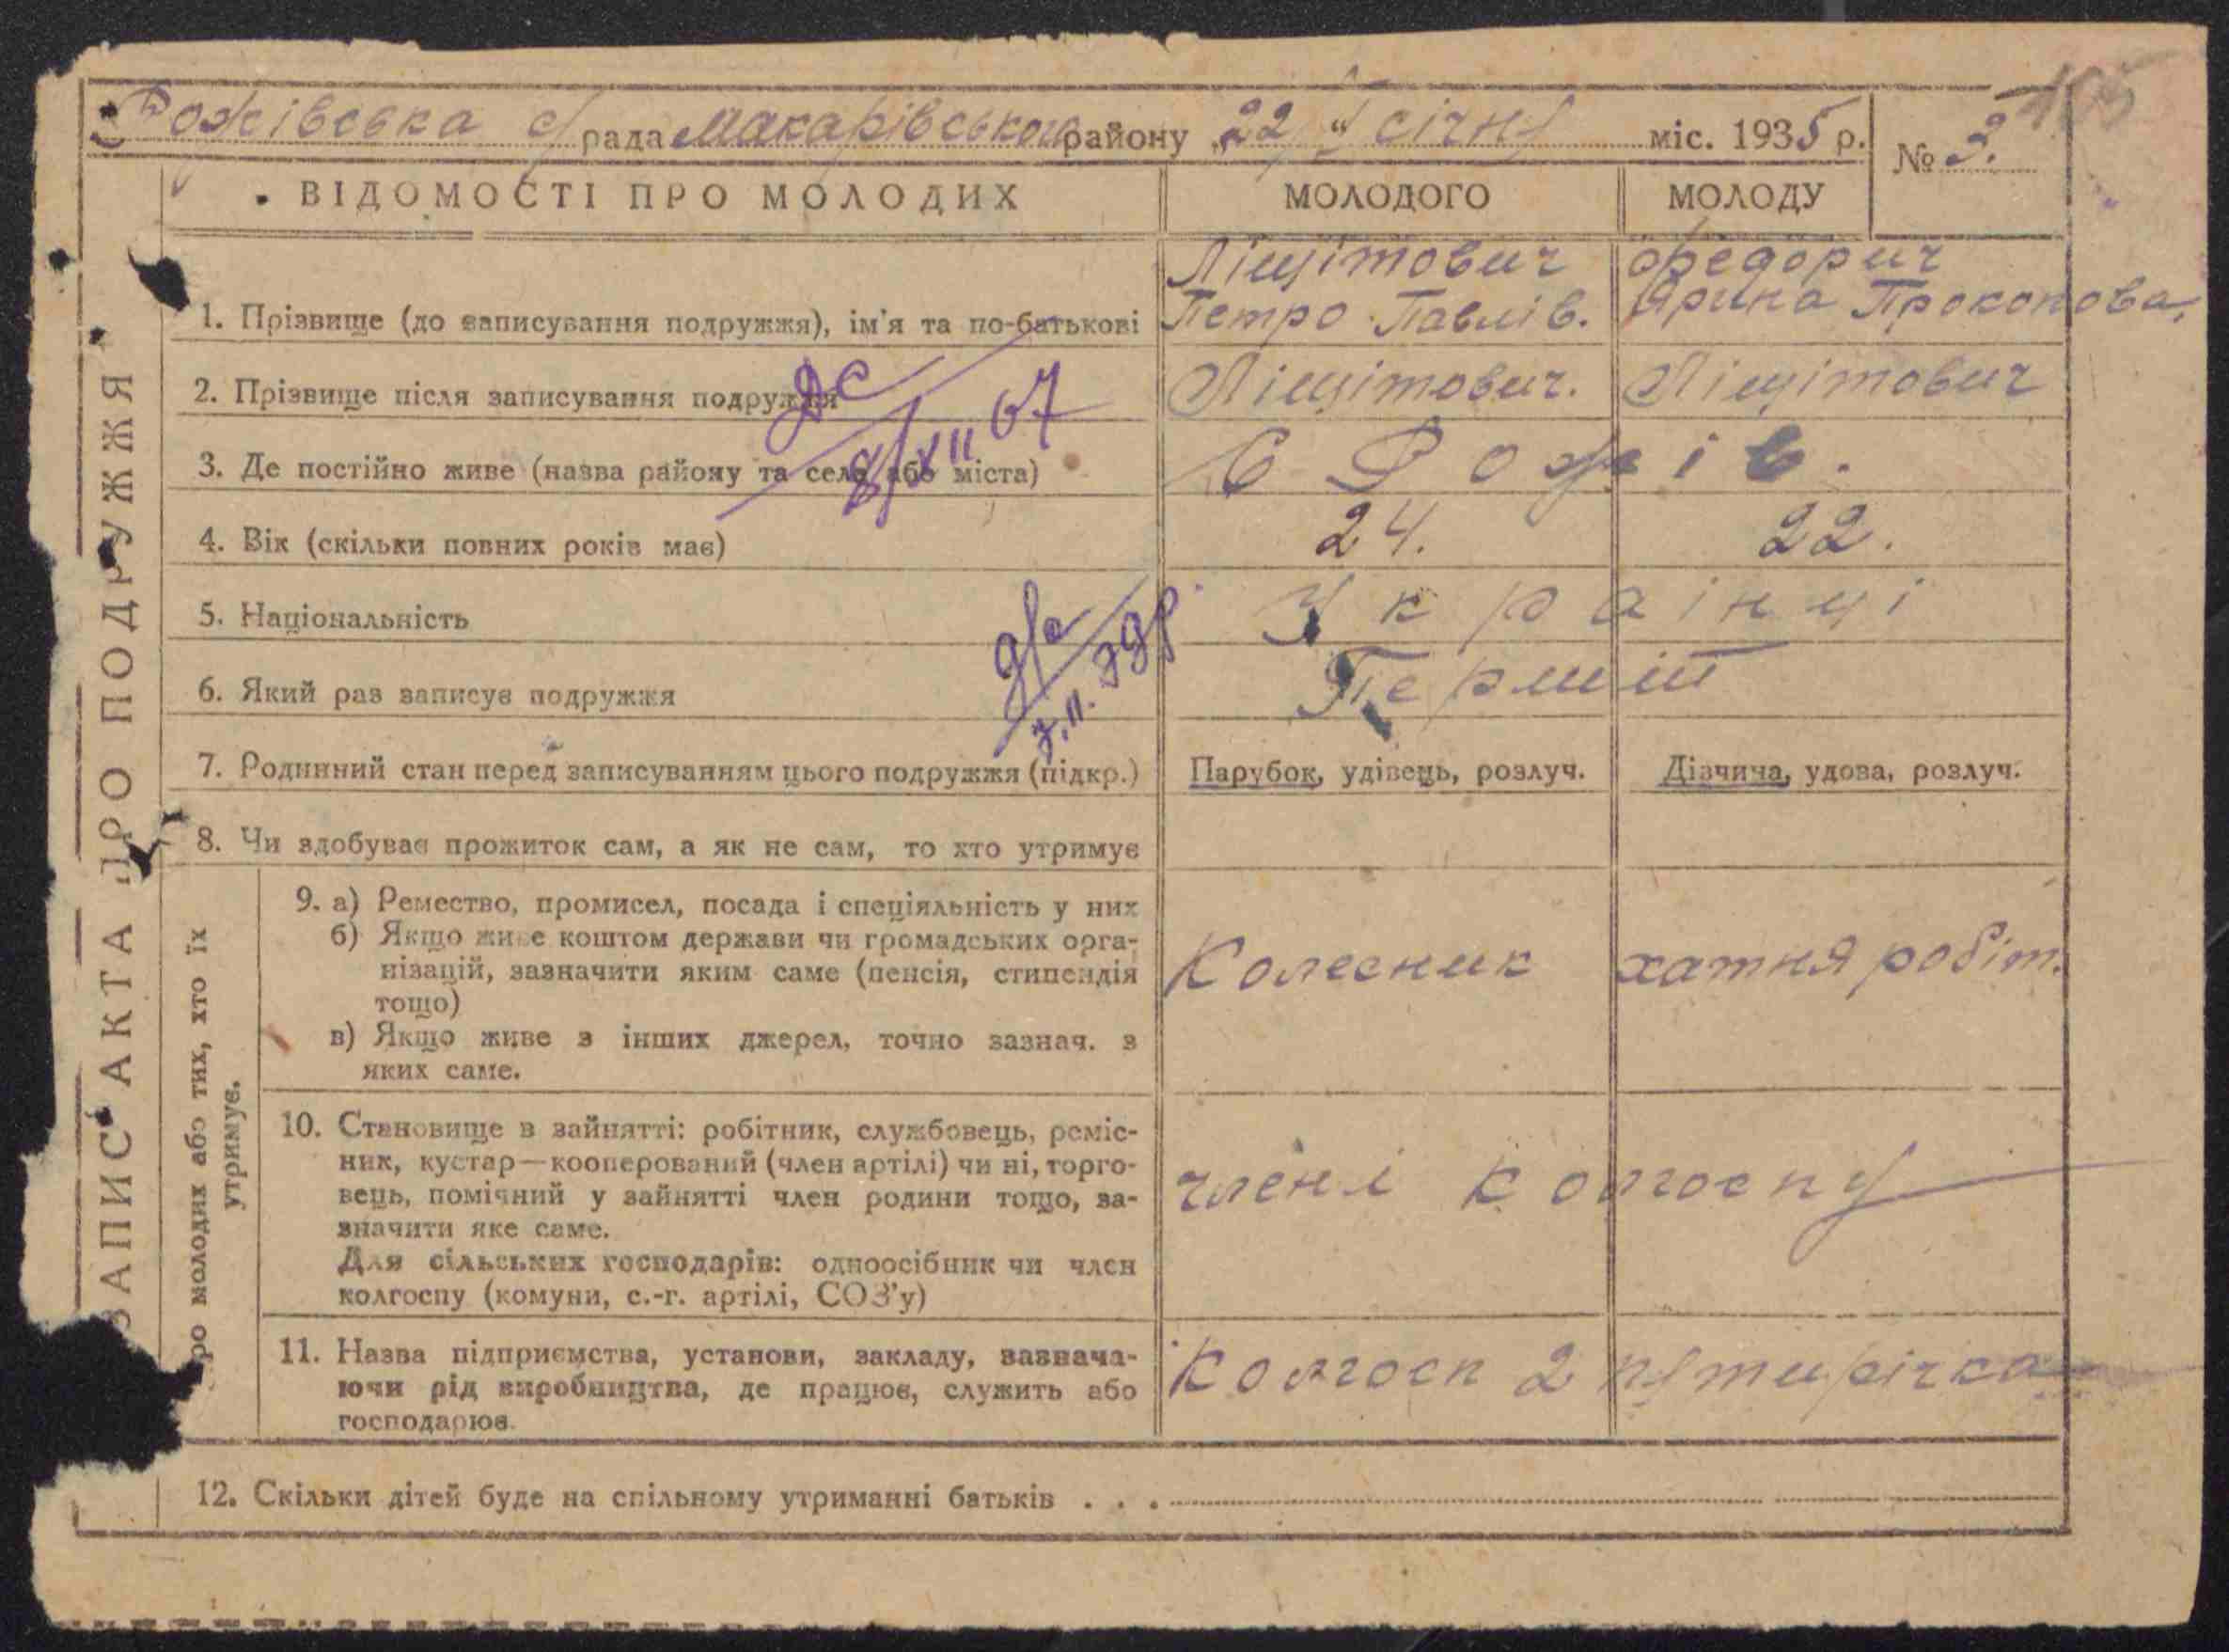 Рожівська с/рада Макарівського району „22“ січня міс. 1935 р.
№ 3.
ВІДОМОСТІ ПРО МОЛОДИХ
МОЛОДОГО
МОЛОДУ
ЗАПИС АКТА ПРО ПОДРУЖЖЯ
1. Прізвище (до записування подружжя), ім'я та по-батькові
Ліщітович
Петро Павлів.
Федорич
Ярина Прокопова,
2. Прізвище після записування подружжя
Ліщітович.
Ліщітович
8/XII 67
3. Де постійно живе (назва району та село або міста)
С Рожів.
4. Вік (скільки повних років має)
24.
22.
5. Національність
Українці
6. Який раз записує подружжя
Перший
7. Родинний стан перед записуванням цього подружжя (підкр.)
Парубок, удівець, розлуч.
Дівчина, удова, розлуч.
8. Чи здобуває прожиток сам, а як не сам, то хто утримує
ро молодих або тих, хто їх
утримує.
9. а) Ремество, промисел, посада і спеціяльність у них
б) Якщо живе коштом держави чи громадських орга-
нізацій, зазначити яким саме (пенсія, стипендія
тощо)
в) Якщо живе з інших джерел, точно зазнач. з
яких саме.
Колесник
хатня робіт.
10. Становище в зайнятті: робітник, службовець, реміс-
ник, кустар—кооперований (член артілі) чи ні, торго-
вець, помічний у зайнятті член родини тощо, за-
значити яке саме.
Для сільських господарів: одноосібник чи член
колгоспу (комуни, с.-г. артілі, СОЗ'у)
члені колгоспу
11. Назва підприємства, установи, закладу, зазнача-
ючи рід виробництва, де працює, служить або
господарює.
Колгосп 2 пятирічка
12. Скільки дітей буде на спільному утриманні батьків . . .